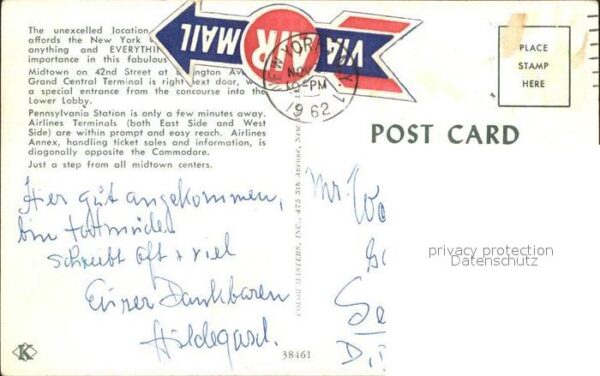 The unexcelled location
affords the New York
anything and EVERYTHIN
importance in this fabulous
Midtown on 42nd Street at Lexington Ave
Grand Central Terminal is right next door,
a special entrance from the concourse into the
Lower Lobby.
Pennsylvania Station is only a few minutes away.
Airlines Terminals (both East Side and West
Side) are within prompt and easy reach. Airlines
Annex, handling ticket sales and information, is
diagonally opposite the Commodore.
Just a step from all midtown centers.
VIA
AIR
MAIL
NEW YORK, N.Y.
NOV
PM
1962
PLACE
STAMP
HERE
POST CARD
Hier gut angekommen,
bin todmüde
schreibt oft + viel
Eurer Dankbaren
Hildegard.
COLOR MASTERS, INC., 475 5th Avenue, New
Mr. Wo
Se
privacy protection
Datenschutz
K
38461